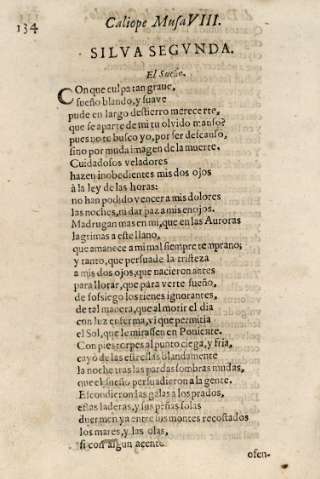 134
Caliope Musa VIII.
SILVA SEGVNDA.
El Sueño.
COn que culpa tan graue,
sueño blando, y suaue
pude en largo destierro merecerte,
que se aparte de mi tu olvido manso?
pues no te busco yo, por ser descanso,
sino por muda imagen de la muerte.
Cuidadosos veladores
hazen inobedientes mis dos ojos
à la ley de las horas:
no han podido vencer a mis dolores
las noches, ni dar paz a mis enojos.
Madrugan mas en mi, que en las Auroras
lagrimas a este llano,
que amanece a mi mal siempre temprano;
y tanto, que persuade la tristeza
a mis dos ojos, que nacieron antes
para llorar, que para verte sueño,
de sosiego los tienes ignorantes,
de tal manera, que al morir el dia
con luz enferma, vi que permitia
el Sol, que le mirassen en Poniente.
Con pies torpes al punto ciega, y fria,
cayò de las estrellas blandamente
la noche tras las pardas sombras mudas,
que el sueño persuadieron a la gente.
Escondieron las galas a los prados,
estas laderas, y sus peñas solas
duermen ya entre los montes recostados
los mares, y las olas,
si con algun acente
ofen-